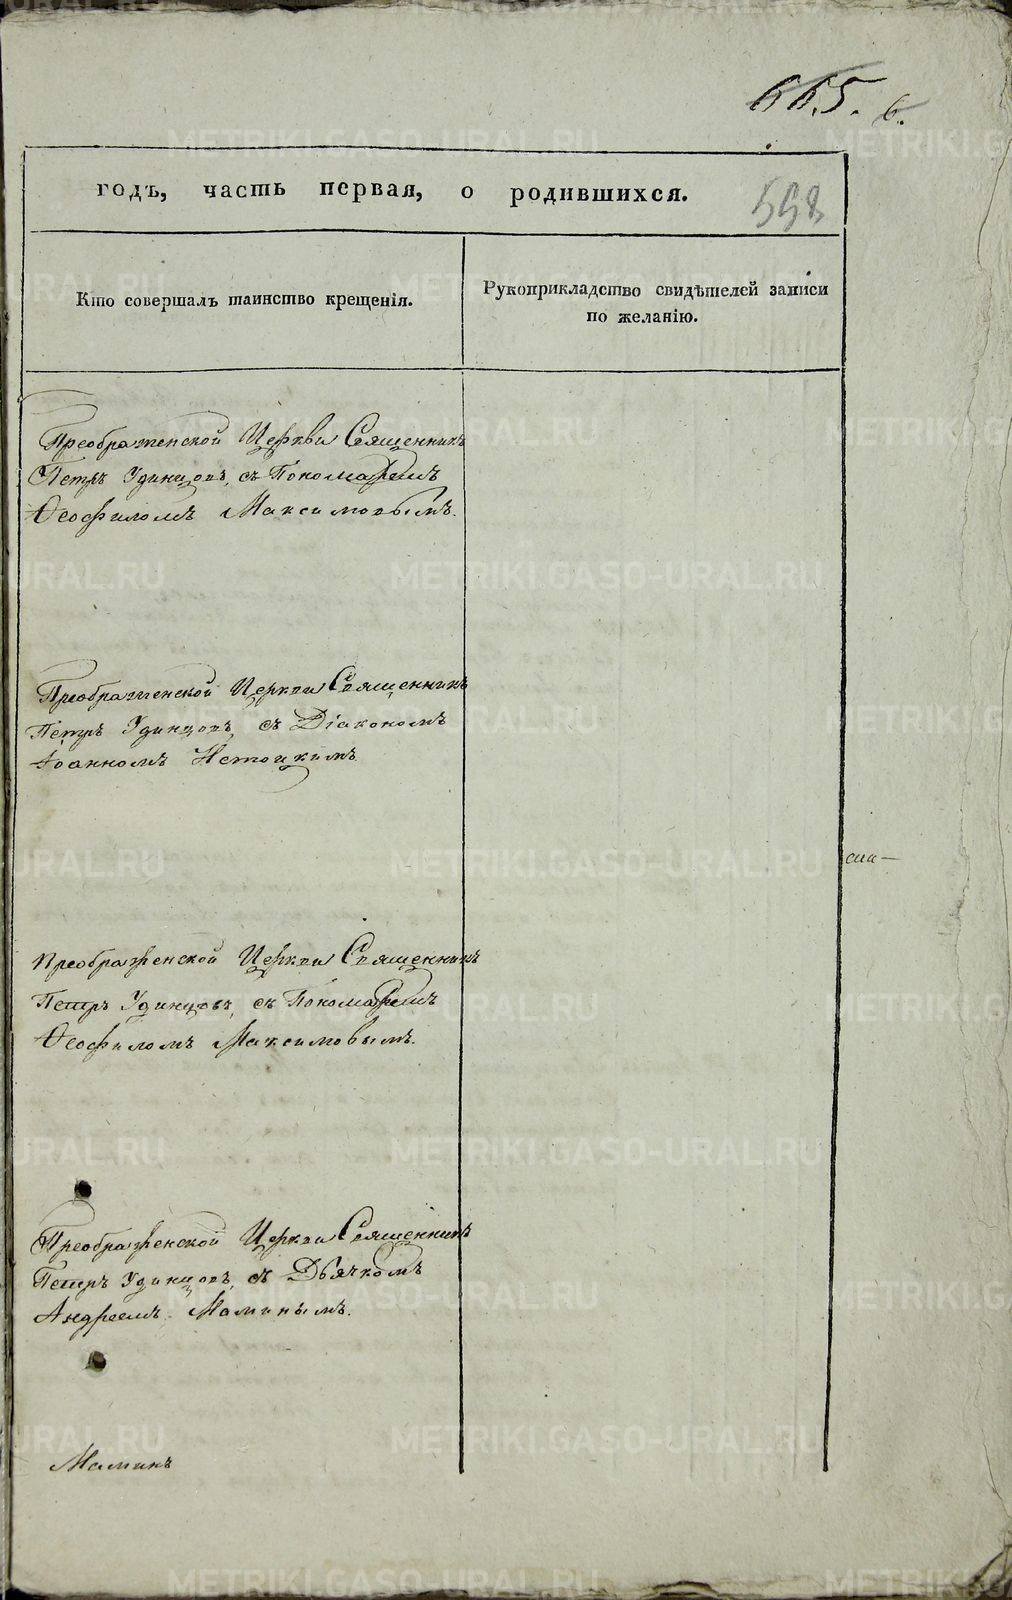 665. 6.
годъ, часть первая, о родившихся. 558
Кто совершалъ таинство крещенія.
Рукоприкладство свидѣтелей записи
по желанію.
Преображенской Церкви Священникъ
Петръ Удинцовъ, съ Пономаремъ
Ѳеофиломъ Максимовымъ.
Преображенской Церкви Священникъ
Петръ Удинцовъ, съ Діакономъ
Іоанномъ
Преображенской Церкви Священникъ
Петръ Удинцовъ, съ Пономаремъ
Ѳеофиломъ Максимовымъ.
Преображенской Церкви Священникъ
Петръ Удинцовъ, съ Дьячкомъ
Андреемъ Маминымъ.
Маминъ
METRIKI.GASO-URAL.RU